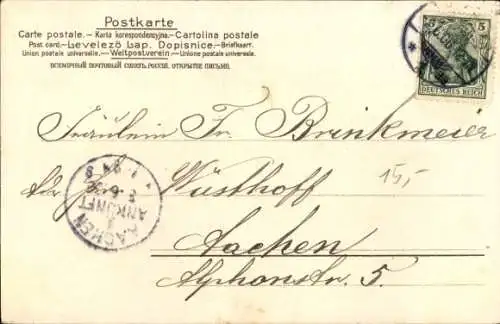 Postkarte
Carte postale. – Karta korespondencyjna. – Cartolina postale
Post card. – Levelező Lap. Dopisnice. – Briefkaart.
Union postale universelle. – Weltpostverein – Unione postale universale.
ВСЕМІРНЫЙ ПОЧТОВЫЙ СОЮЗЪ. РОССІЯ. ОТКРЫТОЕ ПИСЬМО.
5 5
DEUTSCHES REICH
Fräulein Fr. Brinkmeier
Wüsthoff
15,-
Aachen
Alphonstr. 5.
AACHEN
ANKUNFT